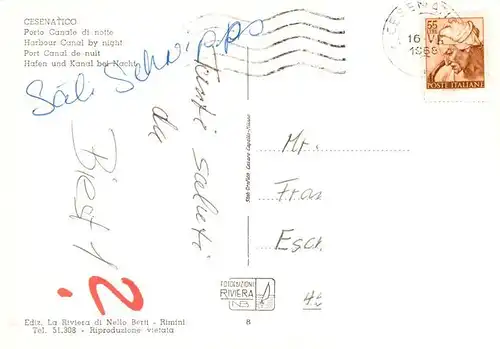 CESENATICO
Porto Canale di notte
Harbour Canal by night
Port Canal de nuit
Hafen und Kanal bei Nacht
Säli Schwipps
tanti saluti
da
Biest 1
2.
CESENATICO
16
1968
55
POSTE ITALIANE
Mr.
Fran
Esch
FOTOEDIZIONI
RIVIERA
NB
8
Ediz. La Riviera di Nello Berti - Rimini
Tel. 51.308 - Riproduzione vietata